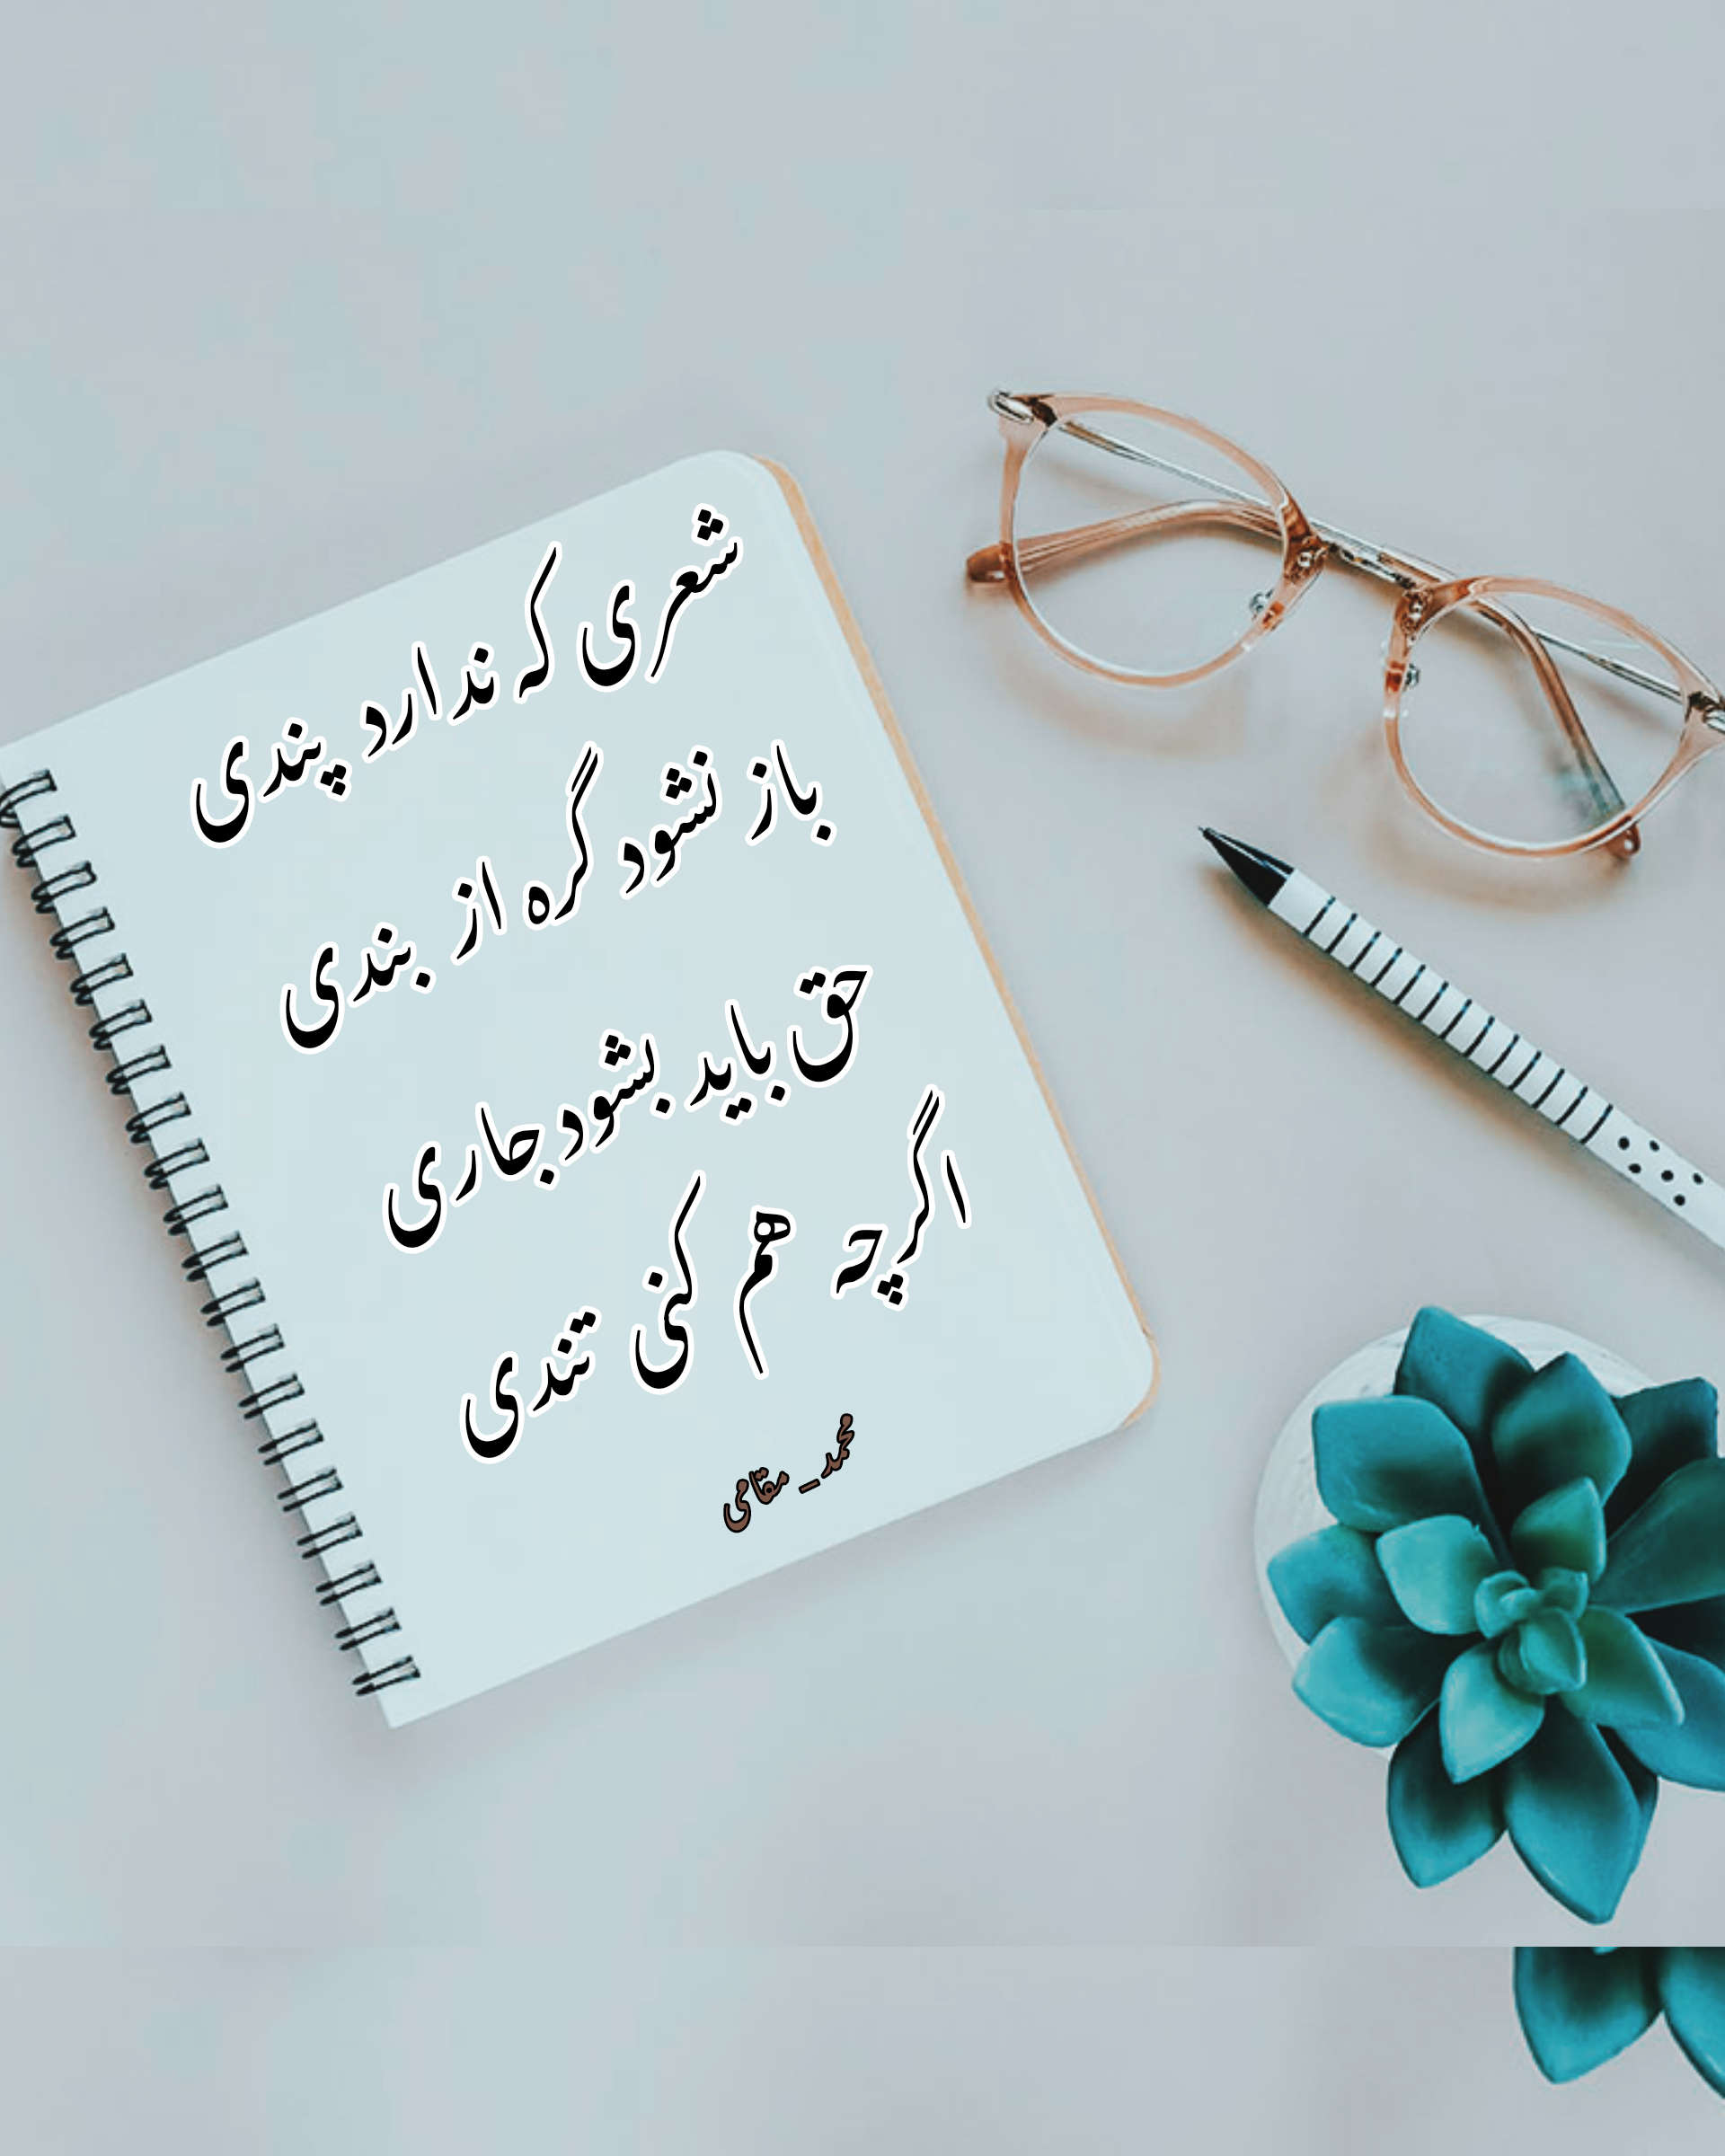 شعری که ندارد پندی
باز نشود گره از بندی
حق باید بشود جاری
اگرچه هم کنی تندی
محمد_مقامی